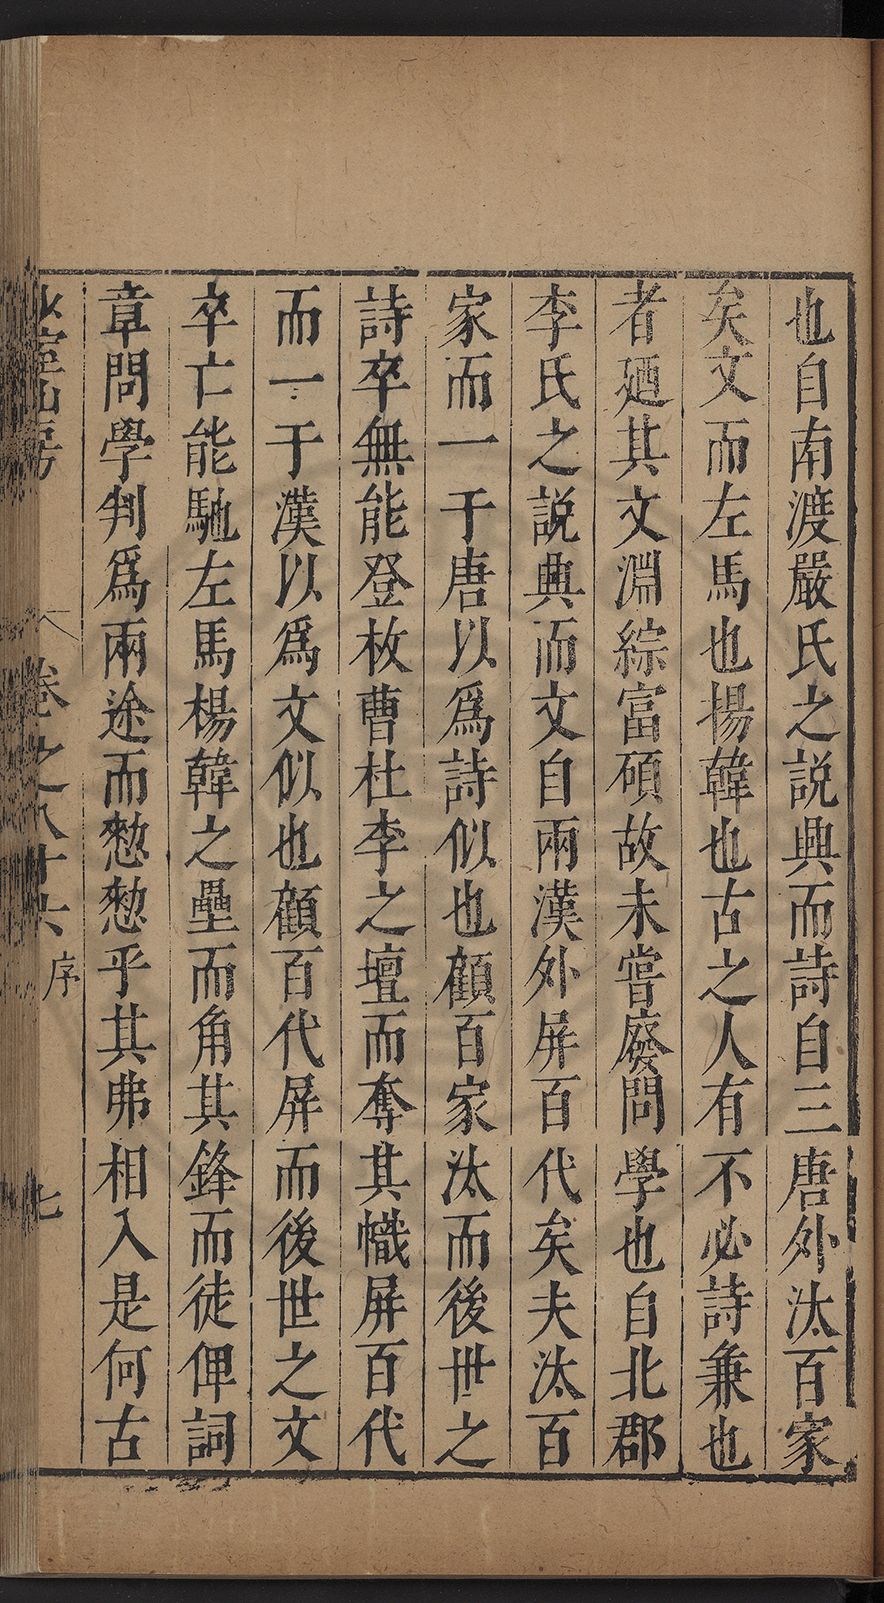 也自南渡嚴氏之説興而詩自三唐外汰百家
矣文而左馬也揚韓也古之人有不必詩兼也
者廼其文淵綜富碩故未嘗廢問學也自北郡
李氏之説典而文自兩漢外屏百代矣夫汰百
家而一于唐以爲詩似也顧百家汰而後世之
詩卒無能登枚曹杜李之壇而奪其幟屏百代
而一于漢以爲文似也顧百代屏而後世之文
卒亡能馳左馬楊韓之壘而角其鋒而徒俾詞
章問學判爲兩途而懃懃乎其弗相入是何古
山房 卷之八十六 序 七